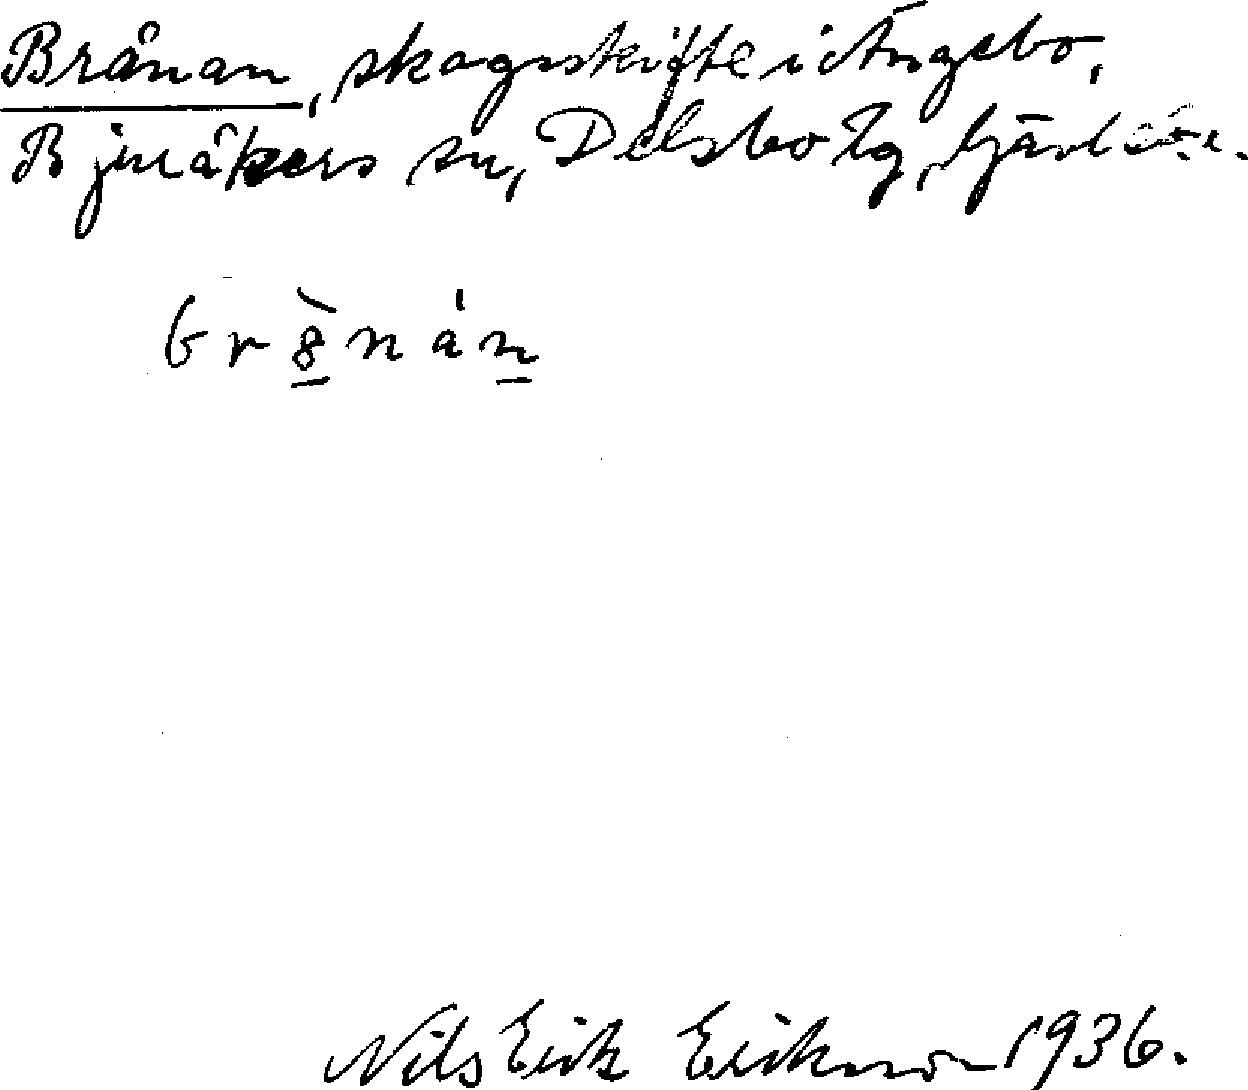 Brånan, skogsskifte i Ängebo,
Bjuråkers sn, Delsbo tg,
br8̲̀nán̲
Nils Erik Eriksson 1936.